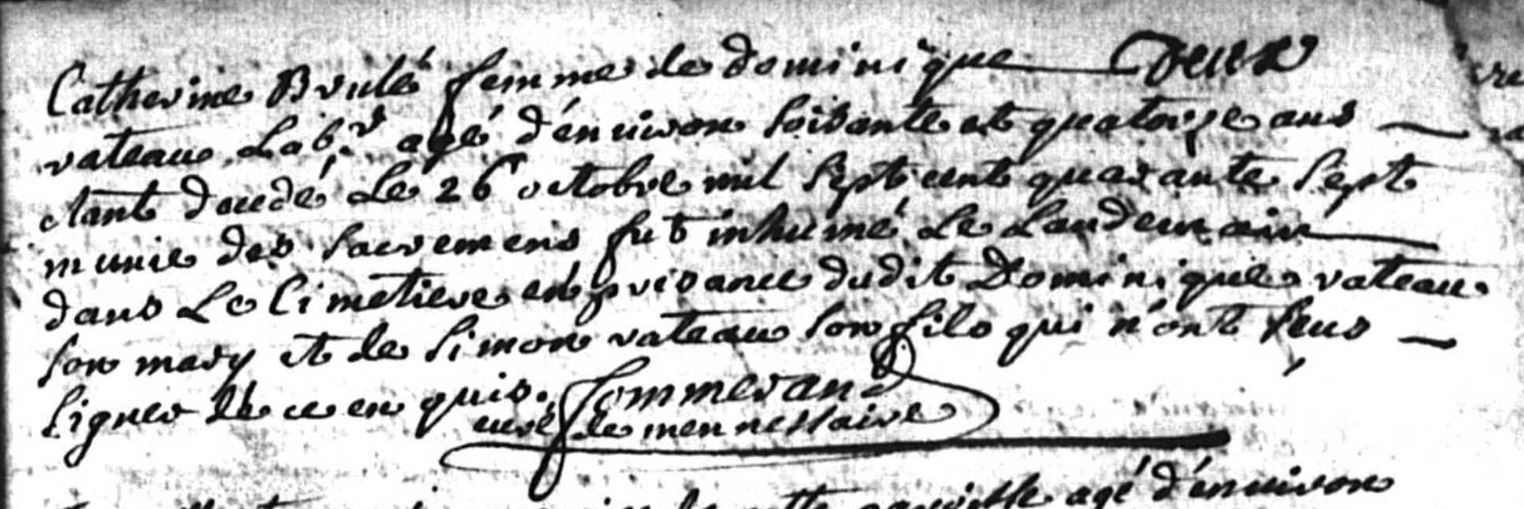 Catherine Brulé femme de dominique
vateau Labr. agé d'énuiron soisante et quatorze ans
étant decedé Le 26 octobre mil sept cent quarante sept
munie des sacremens fut inhumé Le Landemain
dans Le Cimetiere en prisance dudit Dominique vateau
son mary et de simon vateau son fils qui n'ont seus
signer de ce en quis. Sommerand
curé de mennessaire
agé d'énuiron